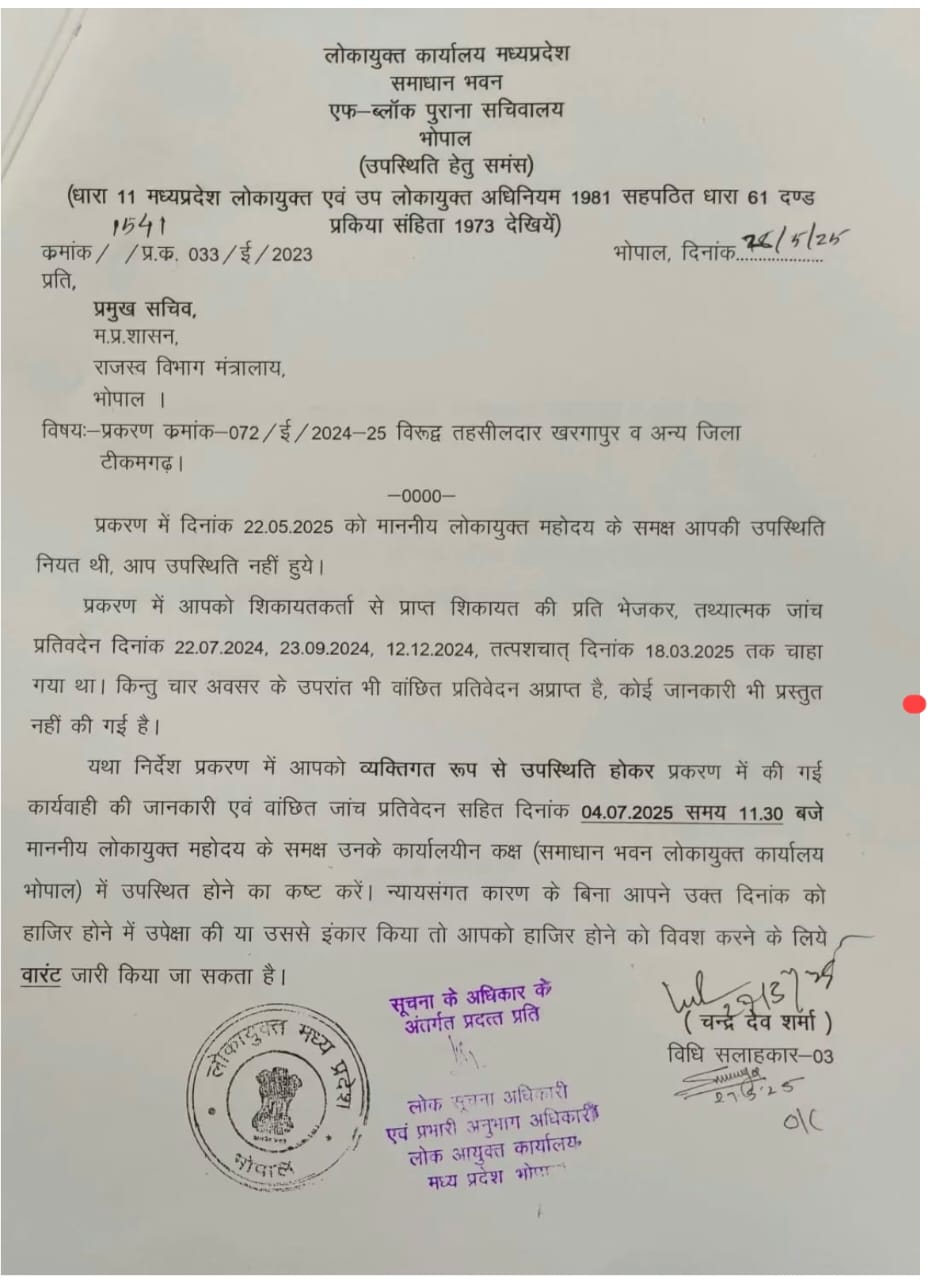 लोकायुक्त कार्यालय मध्यप्रदेश
समाधान भवन
एफ–ब्लॉक पुराना सचिवालय
भोपाल
(उपस्थिति हेतु समंस)
(धारा 11 मध्यप्रदेश लोकायुक्त एवं उप लोकायुक्त अधिनियम 1981 सहपठित धारा 61 दण्ड
प्रकिया संहिता 1973 देखियें)
1541
कमांक/ /प्र.क. 033/ई/2023
भोपाल, दिनांक..28/5/25
प्रति,
प्रमुख सचिव,
म.प्र.शासन,
राजस्व विभाग मंत्रालाय,
भोपाल ।
विषयः–प्रकरण कमांक–072/ई/2024–25 विरूद्व तहसीलदार खरगापुर व अन्य जिला
टीकमगढ़।
–0000–
प्रकरण में दिनांक 22.05.2025 को माननीय लोकायुक्त महोदय के समक्ष आपकी उपस्थिति
नियत थी, आप उपस्थिति नहीं हुये।
प्रकरण में आपको शिकायतकर्ता से प्राप्त शिकायत की प्रति भेजकर, तथ्यात्मक जांच
प्रतिवदेन दिनांक 22.07.2024, 23.09.2024, 12.12.2024, तत्पशचात् दिनांक 18.03.2025 तक चाहा
गया था। किन्तु चार अवसर के उपरांत भी वांछित प्रतिवेदन अप्राप्त है, कोई जानकारी भी प्रस्तुत
नहीं की गई है।
यथा निर्देश प्रकरण में आपको व्यक्तिगत रूप से उपस्थिति होकर प्रकरण में की गई
कार्यवाही की जानकारी एवं वांछित जांच प्रतिवेदन सहित दिनांक 04.07.2025 समय 11.30 बजे
माननीय लोकायुक्त महोदय के समक्ष उनके कार्यालयीन कक्ष (समाधान भवन लोकायुक्त कार्यालय
भोपाल) में उपस्थित होने का कष्ट करें। न्यायसंगत कारण के बिना आपने उक्त दिनांक को
हाजिर होने में उपेक्षा की या उससे इंकार किया तो आपको हाजिर होने को विवश करने के लिये
वारंट जारी किया जा सकता है।
( चन्द्र देव शर्मा )
विधि सलाहकार–03
27/5/25
O/C
सूचना के अधिकार के
अंतर्गत प्रदत्त प्रति
लोक सूचना अधिकारी
एवं प्रभारी अनुभाग अधिकारी
लोक आयुक्त कार्यालय,
मध्य प्रदेश भोपाल
लोकायुक्त मध्य प्रदेश
भोपाल